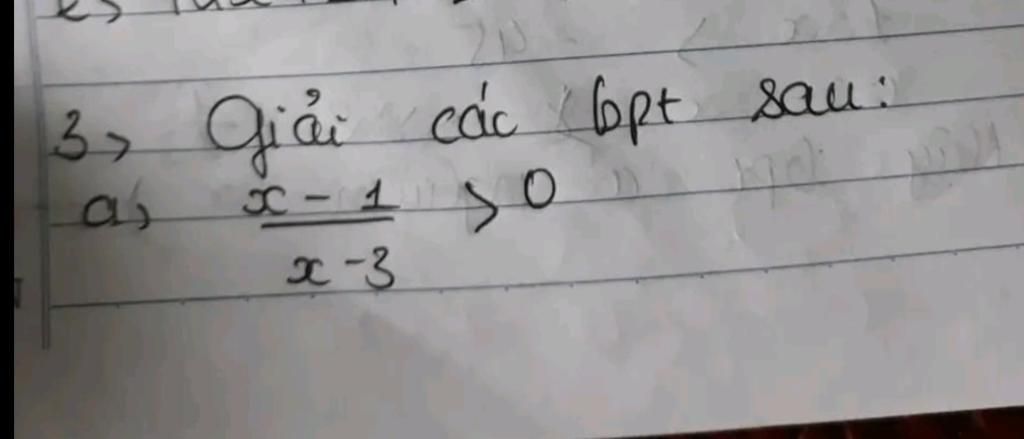 3, Giải các bpt sau:
a, x - 1 > 0
x - 3